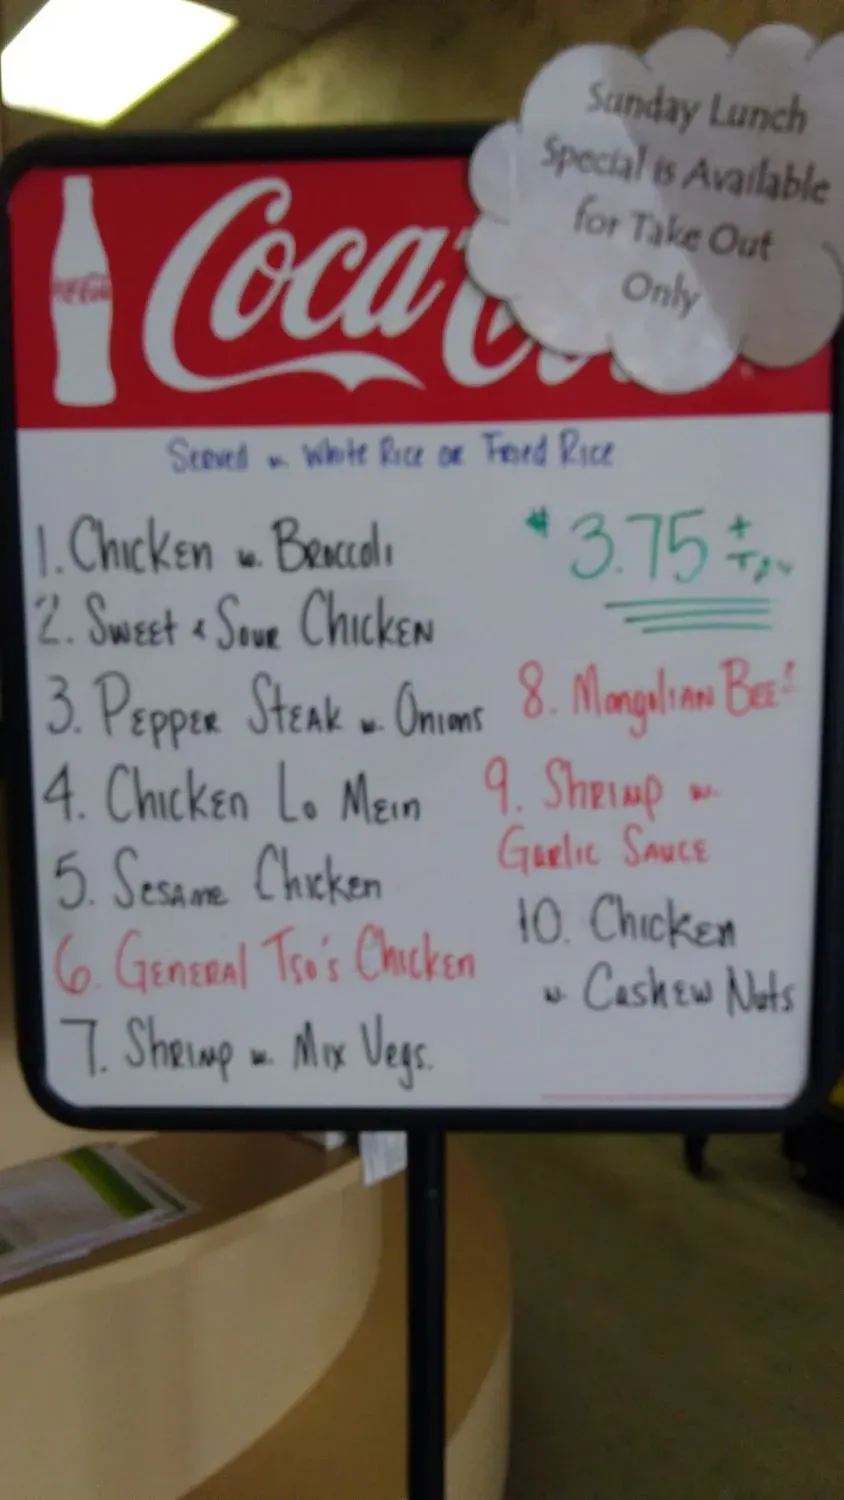 Sunday Lunch
Special is Available
for Take Out
Only
Coca
Served w. White Rice or Fried Rice
$3.75 + Tax
1. Chicken w. Broccoli
2. Sweet & Sour Chicken
3. Pepper Steak w. Onions
4. Chicken Lo Mein
5. Sesame Chicken
6. General Tso's Chicken
7. Shrimp w. Mix Vegs.
8. Mongolian Beef
9. Shrimp w.
Garlic Sauce
10. Chicken
w. Cashew Nuts